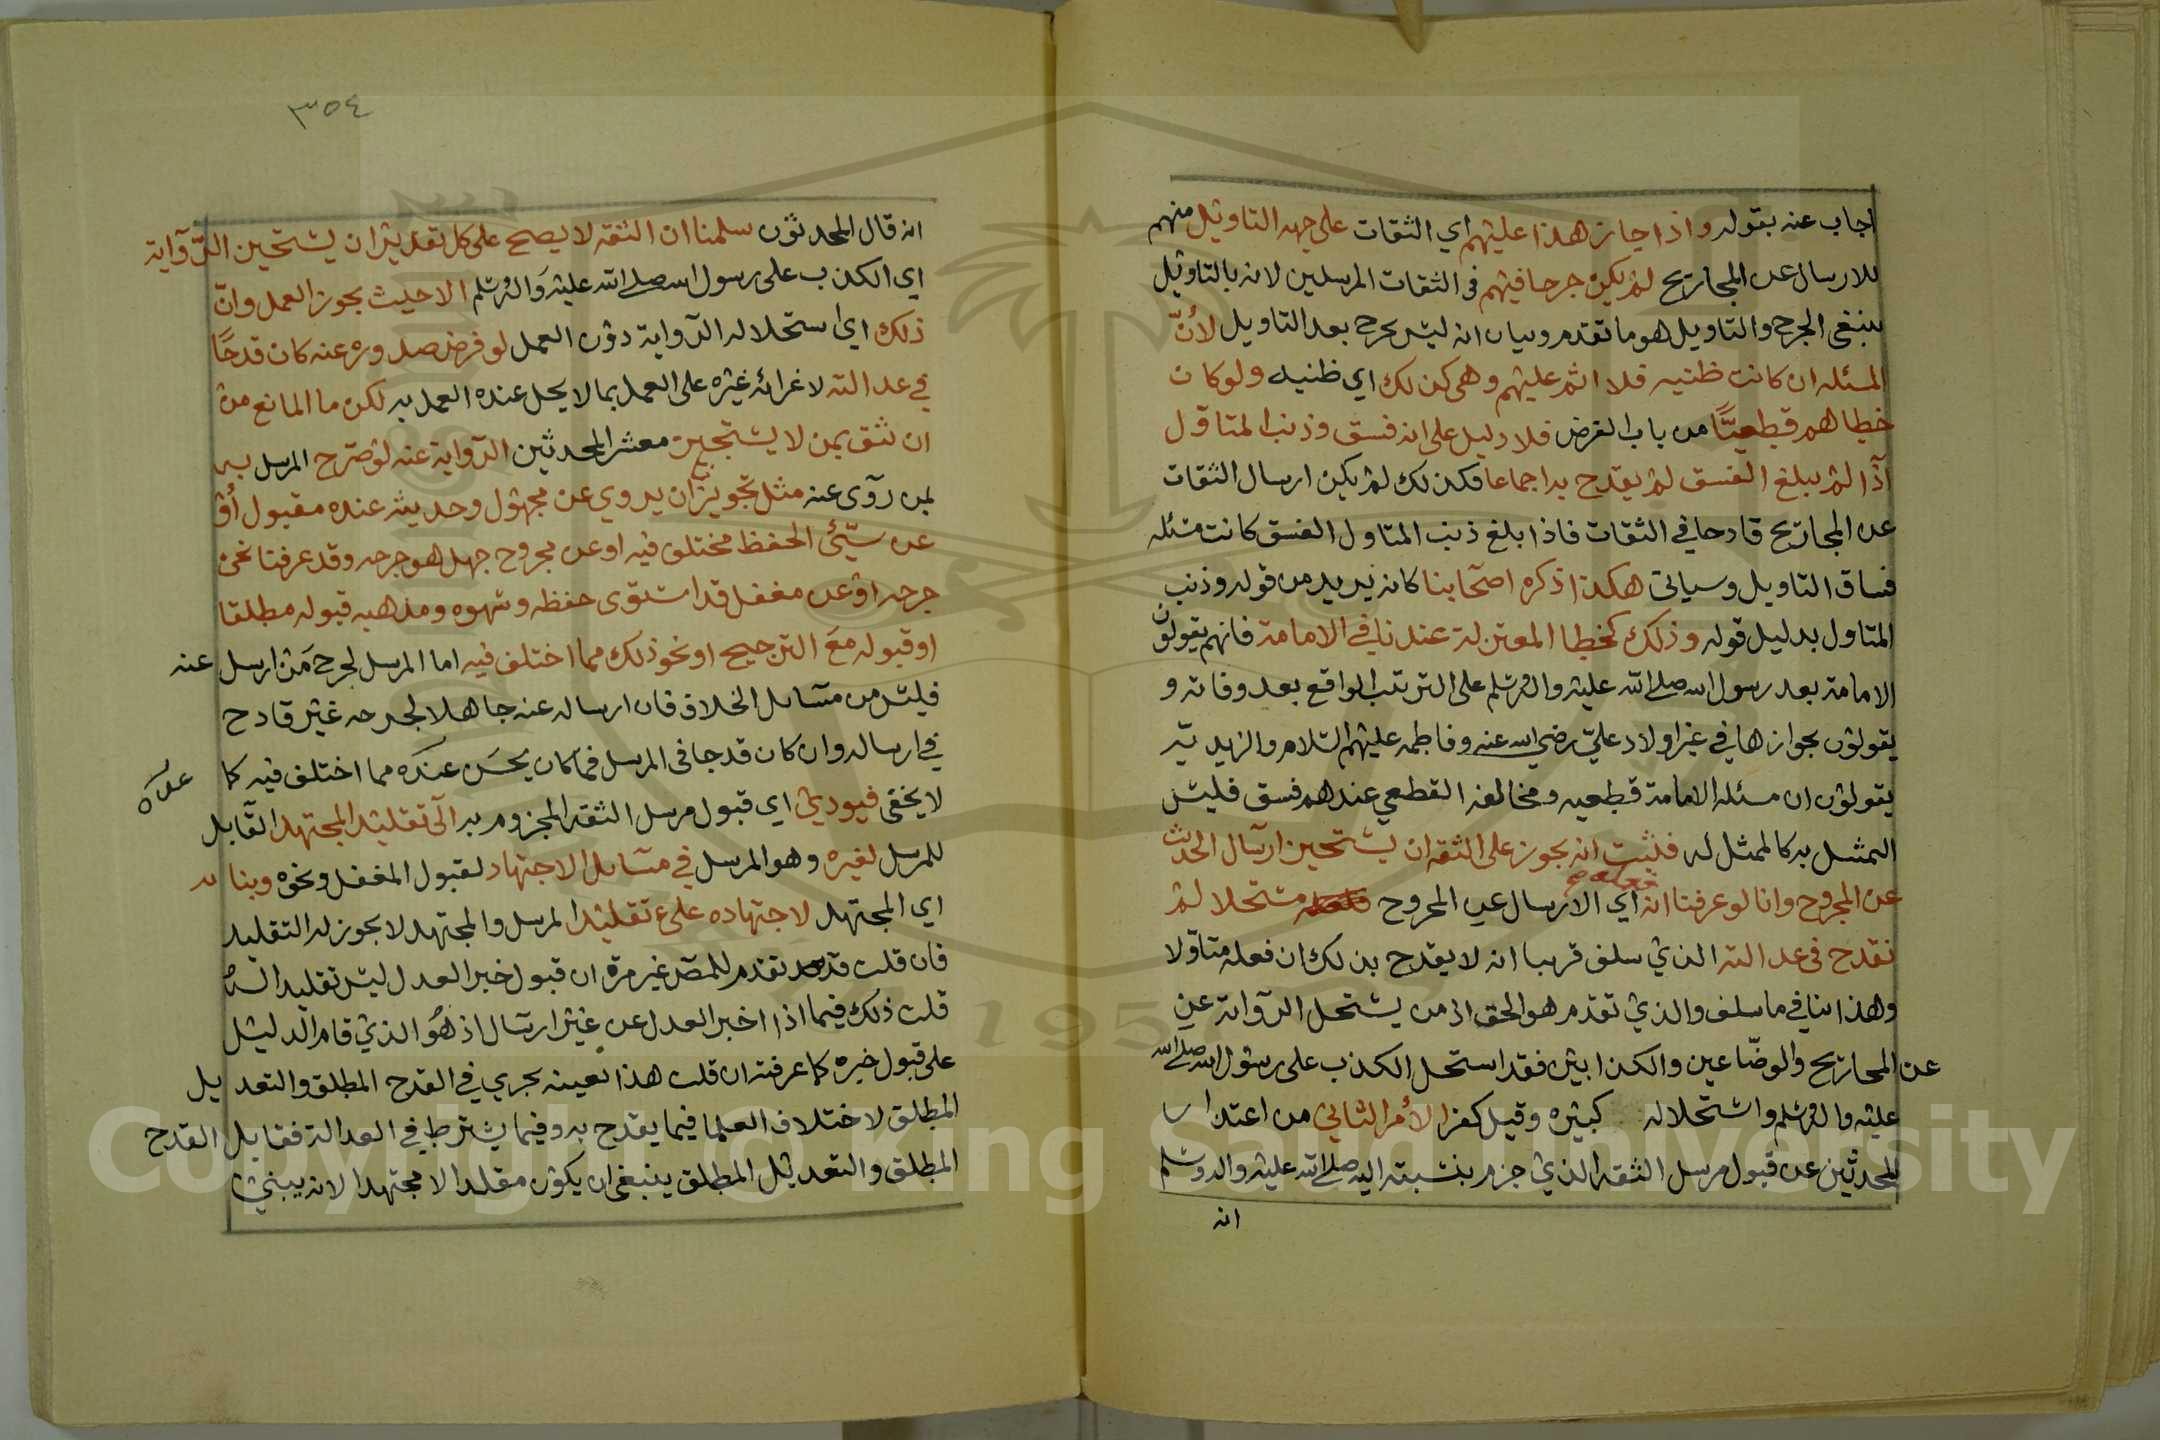 اجاب عنه بقوله واذا جاز هذا عليهم اي الثقات على جهة التاويل منهم
للارسال عن المجاريح لم يكن جرحا فيهم في الثقات المرسلين لانه بالتاويل
ينبغي الجرح والتاويل هو ما تقدم وبيان انه ليس بجرح بعد التاويل لأنّ
المسئله ان كانت ظنيه فلا اثم عليهم وهي كذلك اي ظنيه ولو كان
خطاهم قطعيًّا من باب الفرض فلا دليل على انه فسق وذنب المتاوّل
اذا لم يبلغ الفسق لم يقدح به اجماعا فكذلك لم يكن ارسال الثقات
عن المجاريح قادحا في الثقات فاذا بلغ ذنب المتاول الفسق كانت مسئله
فساق التاويل وسياتي هكذا ذكره اصحابنا كانه يريد من قوله وذنب
المتاول بدليل قوله وذلك كخطا المعتزلة عندنا في الامامة فانهم يقولون
الامامة بعد رسول الله صلى الله عليه واله وسلم على الترتيب الواقع بعد وفاته و
يقولون بجوازها في غير اولاد عليّ رضي الله عنه وفاطمه عليهم السلام والزيديّة
يقولون ان مسئله الامامة قطعيه ومخالفه القطعي عندهم فسق فليس
الممثل به كالممثل له فثبت انه يجوز على الثقه ان يستحين ارسال الحديث
عن المجروح وانا لو عرفنا انه اي الارسال عن المجروح فعله مستحلا لم
نقدح في عدالته الذي سلف قريبا انه لا يقدح بذلك ان فعله متاوّلا
وهذا ينافي ما سلف والذي تقدم هو الحق اذ من يستحل الرواية عن
عن المجاريح والوضّاعين والكذابين فقد استحل الكذب على رسول الله صلى الله
عليه واله وسلم واستحلاله كبيره وقيل كفر الأمر الثاني من اعتذار
المحدثين عن قبول مرسل الثقه الذي جزم بنسبته اليه صلى الله عليه واله وسلم
انه
٣٥٤
انه قال المحدثون سلمنا ان الثقه لا يصح على كل تقدير ان يستحين الرّواية
اي الكذب على رسول الله صلى الله عليه واله وسلم الا حيث يجوز العمل وانّ
ذلك اي استحلاله الرواية دون العمل لو فرض صدوره عنه كان قدحًا
في عدالته لاغرائه غيره على العمل بما لا يحل عنده العمل به لكن ما المانع من
ان نثق بمن لا يستجيز معشر المحدثين الرواية عنه لو صرّح المرسل به
بمن روى عنه مثل تجويز ان يروي عن مجهول وحديثه عنده مقبول أو
عن سيّئ الحفظ مختلق فيه او عن مجروح جهل هو جرحه وقد عرفنا نحن
جرحه او عن مغفل قد استوى حفظه وسهوه ومذهبه قبوله مطلقا
او قبوله مع الترجيح او نحو ذلك مما اختلف فيه اما المرسل لجرح مَن ارسل عنه
فليس من مسايل الخلاف فان ارساله عنه جاهلا لجرحه غير قادح
في ارساله وان كان قدحا في المرسل فما كان يحسن عنده مما اختلف فيه كما
عده
لا يخفى فيودي اي قبول مرسل الثقه المجزوم به الى تقليد المجتهد القابل
للمرسل لغيره وهو المرسل في مسايل الاجتهاد لقبول المغفل ونحوه وبنايه
اي المجتهد لاجتهاده على تقليد المرسل والمجتهد لا يجوز له التقليد
فان قلت قد تقدم للمص غير مرة ان قبول خبر العدل ليس تقليدا له
قلت ذلك فيما اذا اخبر العدل عن غير ارسال اذ هو الذي قام الدليل
على قبول خبره كما عرفته ان قلت هذا بعينه يجري في القدح المطلق والتعديل
المطلق لاختلاف العلما فيما يقدح به وفيما يشترط في العدالة فقابل القدح
المطلق والتعديل المطلق ينبغي ان يكون مقلدا لا مجتهدا لانه يبني
Copyright © King Saud University
1957